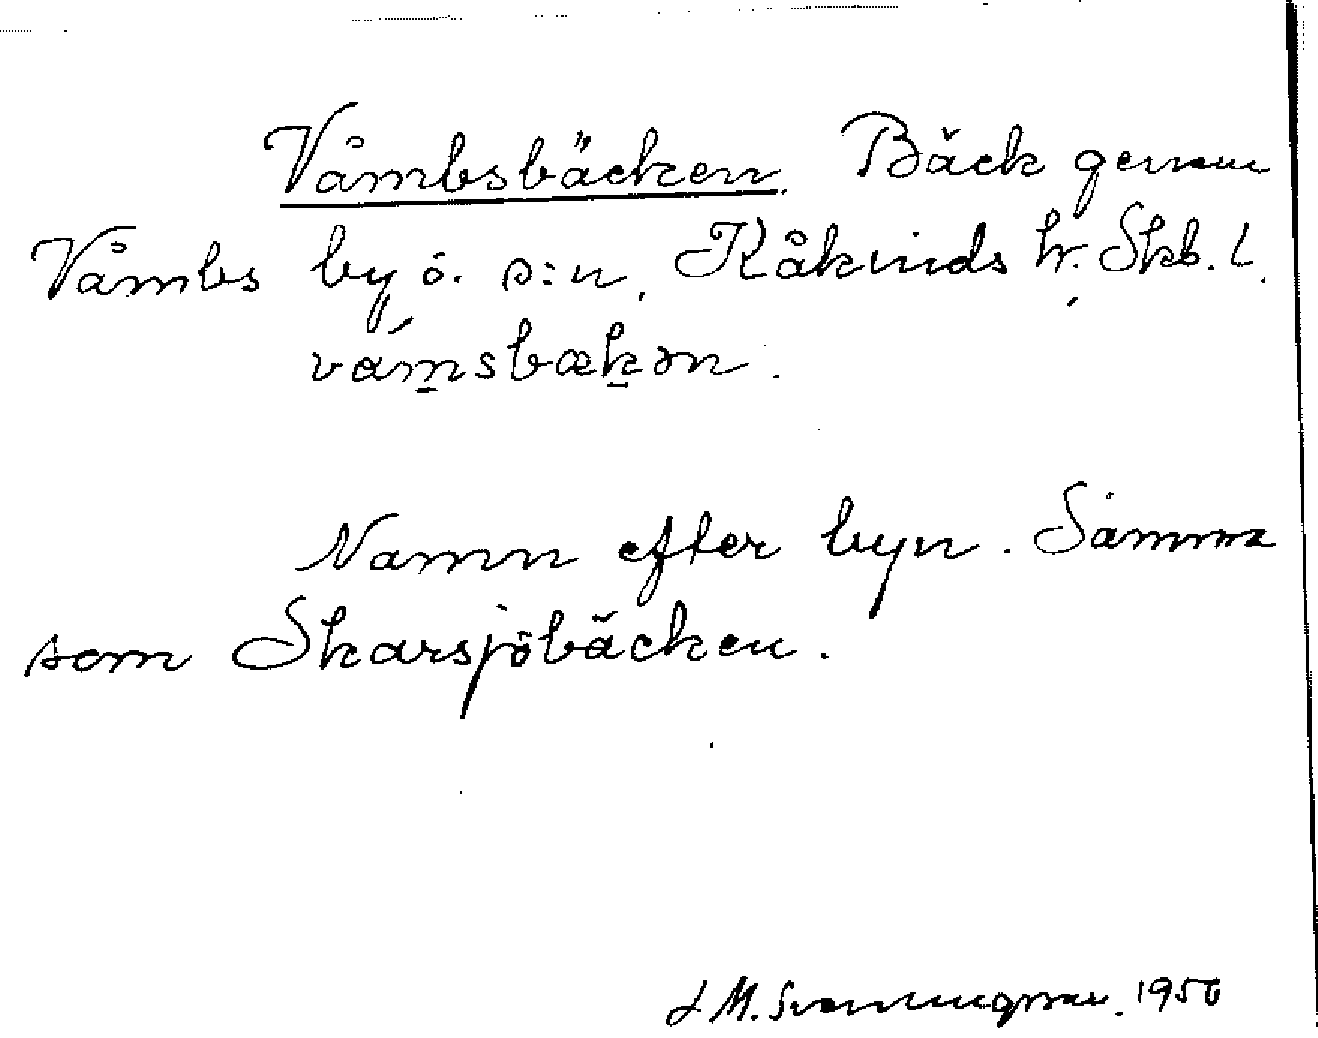 Våmbsbäcken. Bäck genom
Våmbs by ö. s:n, Kåkinds hr. Skb. l.
våmsbækən.
Namn efter byn. Samma
som Skarsjöbäcken.
M. 1950